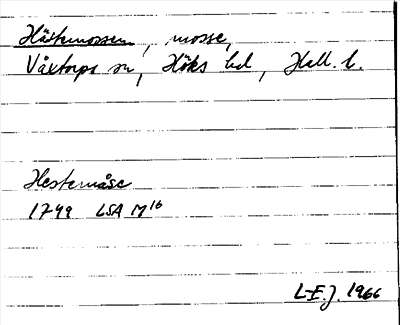 Hästemossen, mosse,
Våxtorps sn, Höks hd, Hall. l.
Hestemåse
1799 LSA M 16
L-E.J. 1966